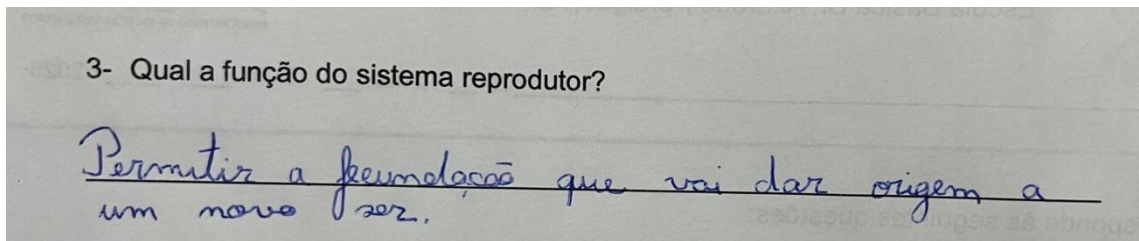 3- Qual a função do sistema reprodutor?
Permitir a fecundação que vai dar origem a
um novo ser.